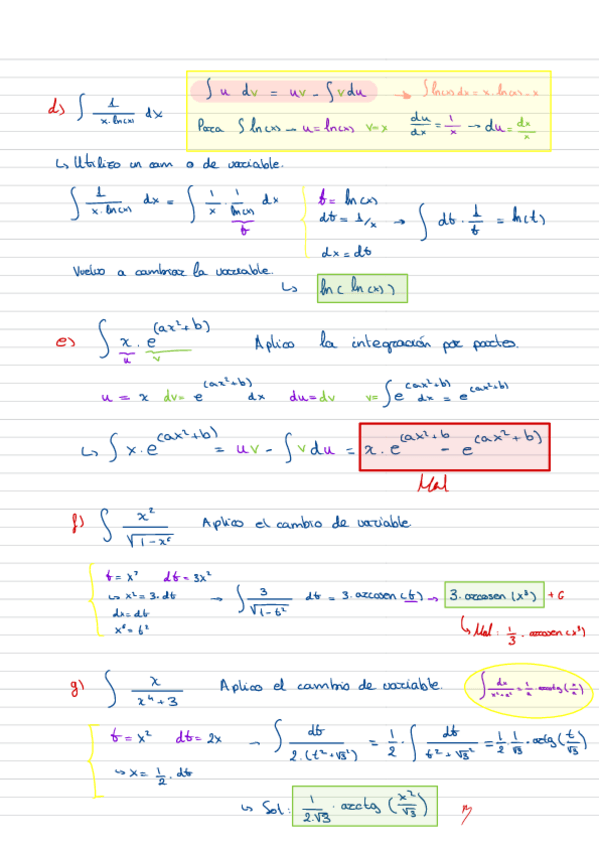 ∫ u dv = uv - ∫ v du → ∫ ln(x) dx = x · ln(x) - x
d) ∫ 1/(x · ln(x)) dx
Para ∫ ln(x) → u = ln(x) v = x du/dx = 1/x → du = dx/x
↳ Utilizo un cam o de variable.
∫ 1/(x · ln(x)) dx = ∫ 1/x · 1/ln(x) dx
t
t = ln(x)
dt = 1/x → ∫ dt · 1/t = ln(t)
dx = dt
Vuelvo a cambiar la variable.
↳ ln( ln(x) )
e) ∫ x · e^(ax²+b) Aplico la integración por partes.
u v
u = x dv = e^(ax²+b) dx du = dv v = ∫ e^(ax²+b) dx = e^(ax²+b)
↳ ∫ x · e^(ax²+b) = uv - ∫ v du = x · e^(ax²+b - e^(ax²+b)
Mal
f) ∫ x²/√(1-x⁶) Aplico el cambio de variable
t = x³ dt = 3x²
↳ x² = 3 · dt → ∫ 3/√(1-t²) dt = 3 · arcosen (t) → 3 · arcosen (x³) + C
dx = dt
x⁶ = t²
↳ Mal: 1/3 · arcosen (x³)
g) ∫ x/(x⁴+3) Aplico el cambio de variable.
t = x² dt = 2x → ∫ dt/(2 · (t²+√3²)) = 1/2 · ∫ dt/(t²+√3²) = 1/2 · 1/√3 · arctg (t/√3)
↳ x = 1/2 · dt
↳ Sol: 1/(2·√3) · arctg (x²/√3)